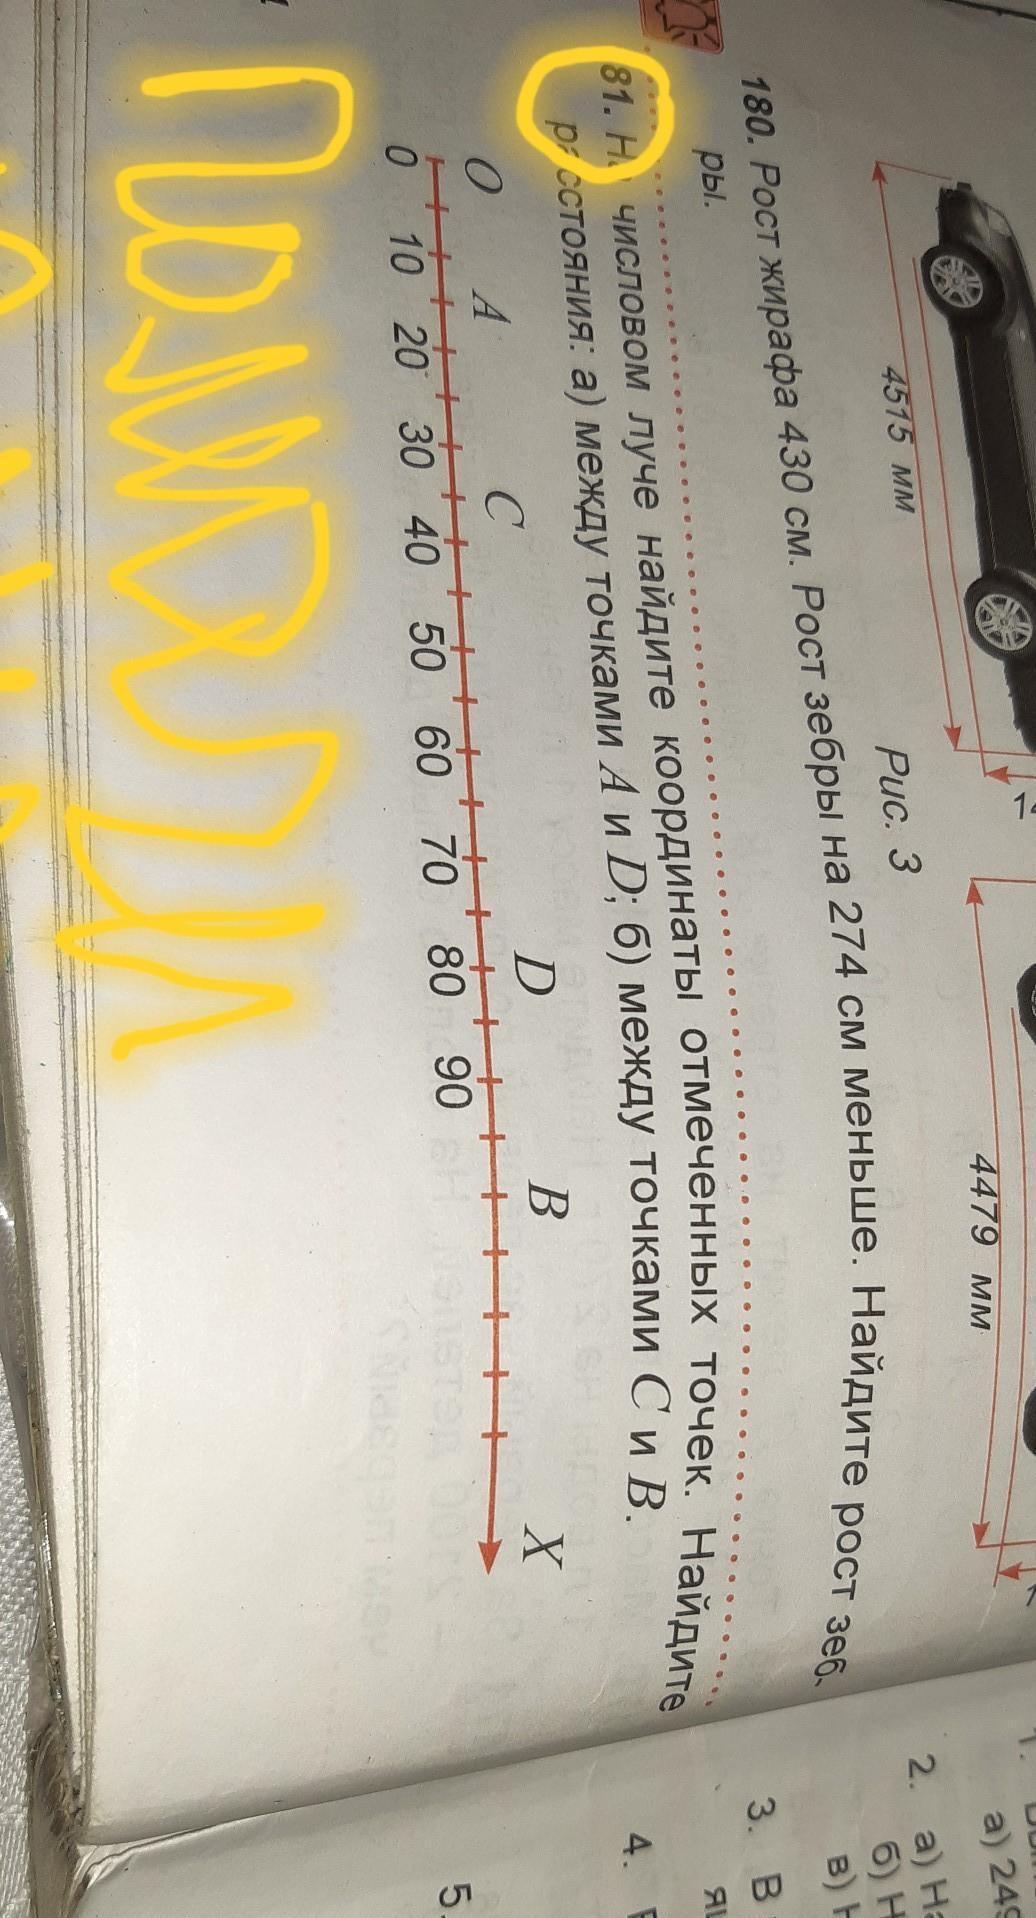 4515 мм
4479 мм
Рис. 3
180. Рост жирафа 430 см. Рост зебры на 274 см меньше. Найдите рост зеб-
ры.
81. На числовом луче найдите координаты отмеченных точек. Найдите
расстояния: а) между точками A и D; б) между точками C и B.
O A C D B X
0 10 20 30 40 50 60 70 80 90
2. а)
б)
в)
3. В
4.
5.
а) 249